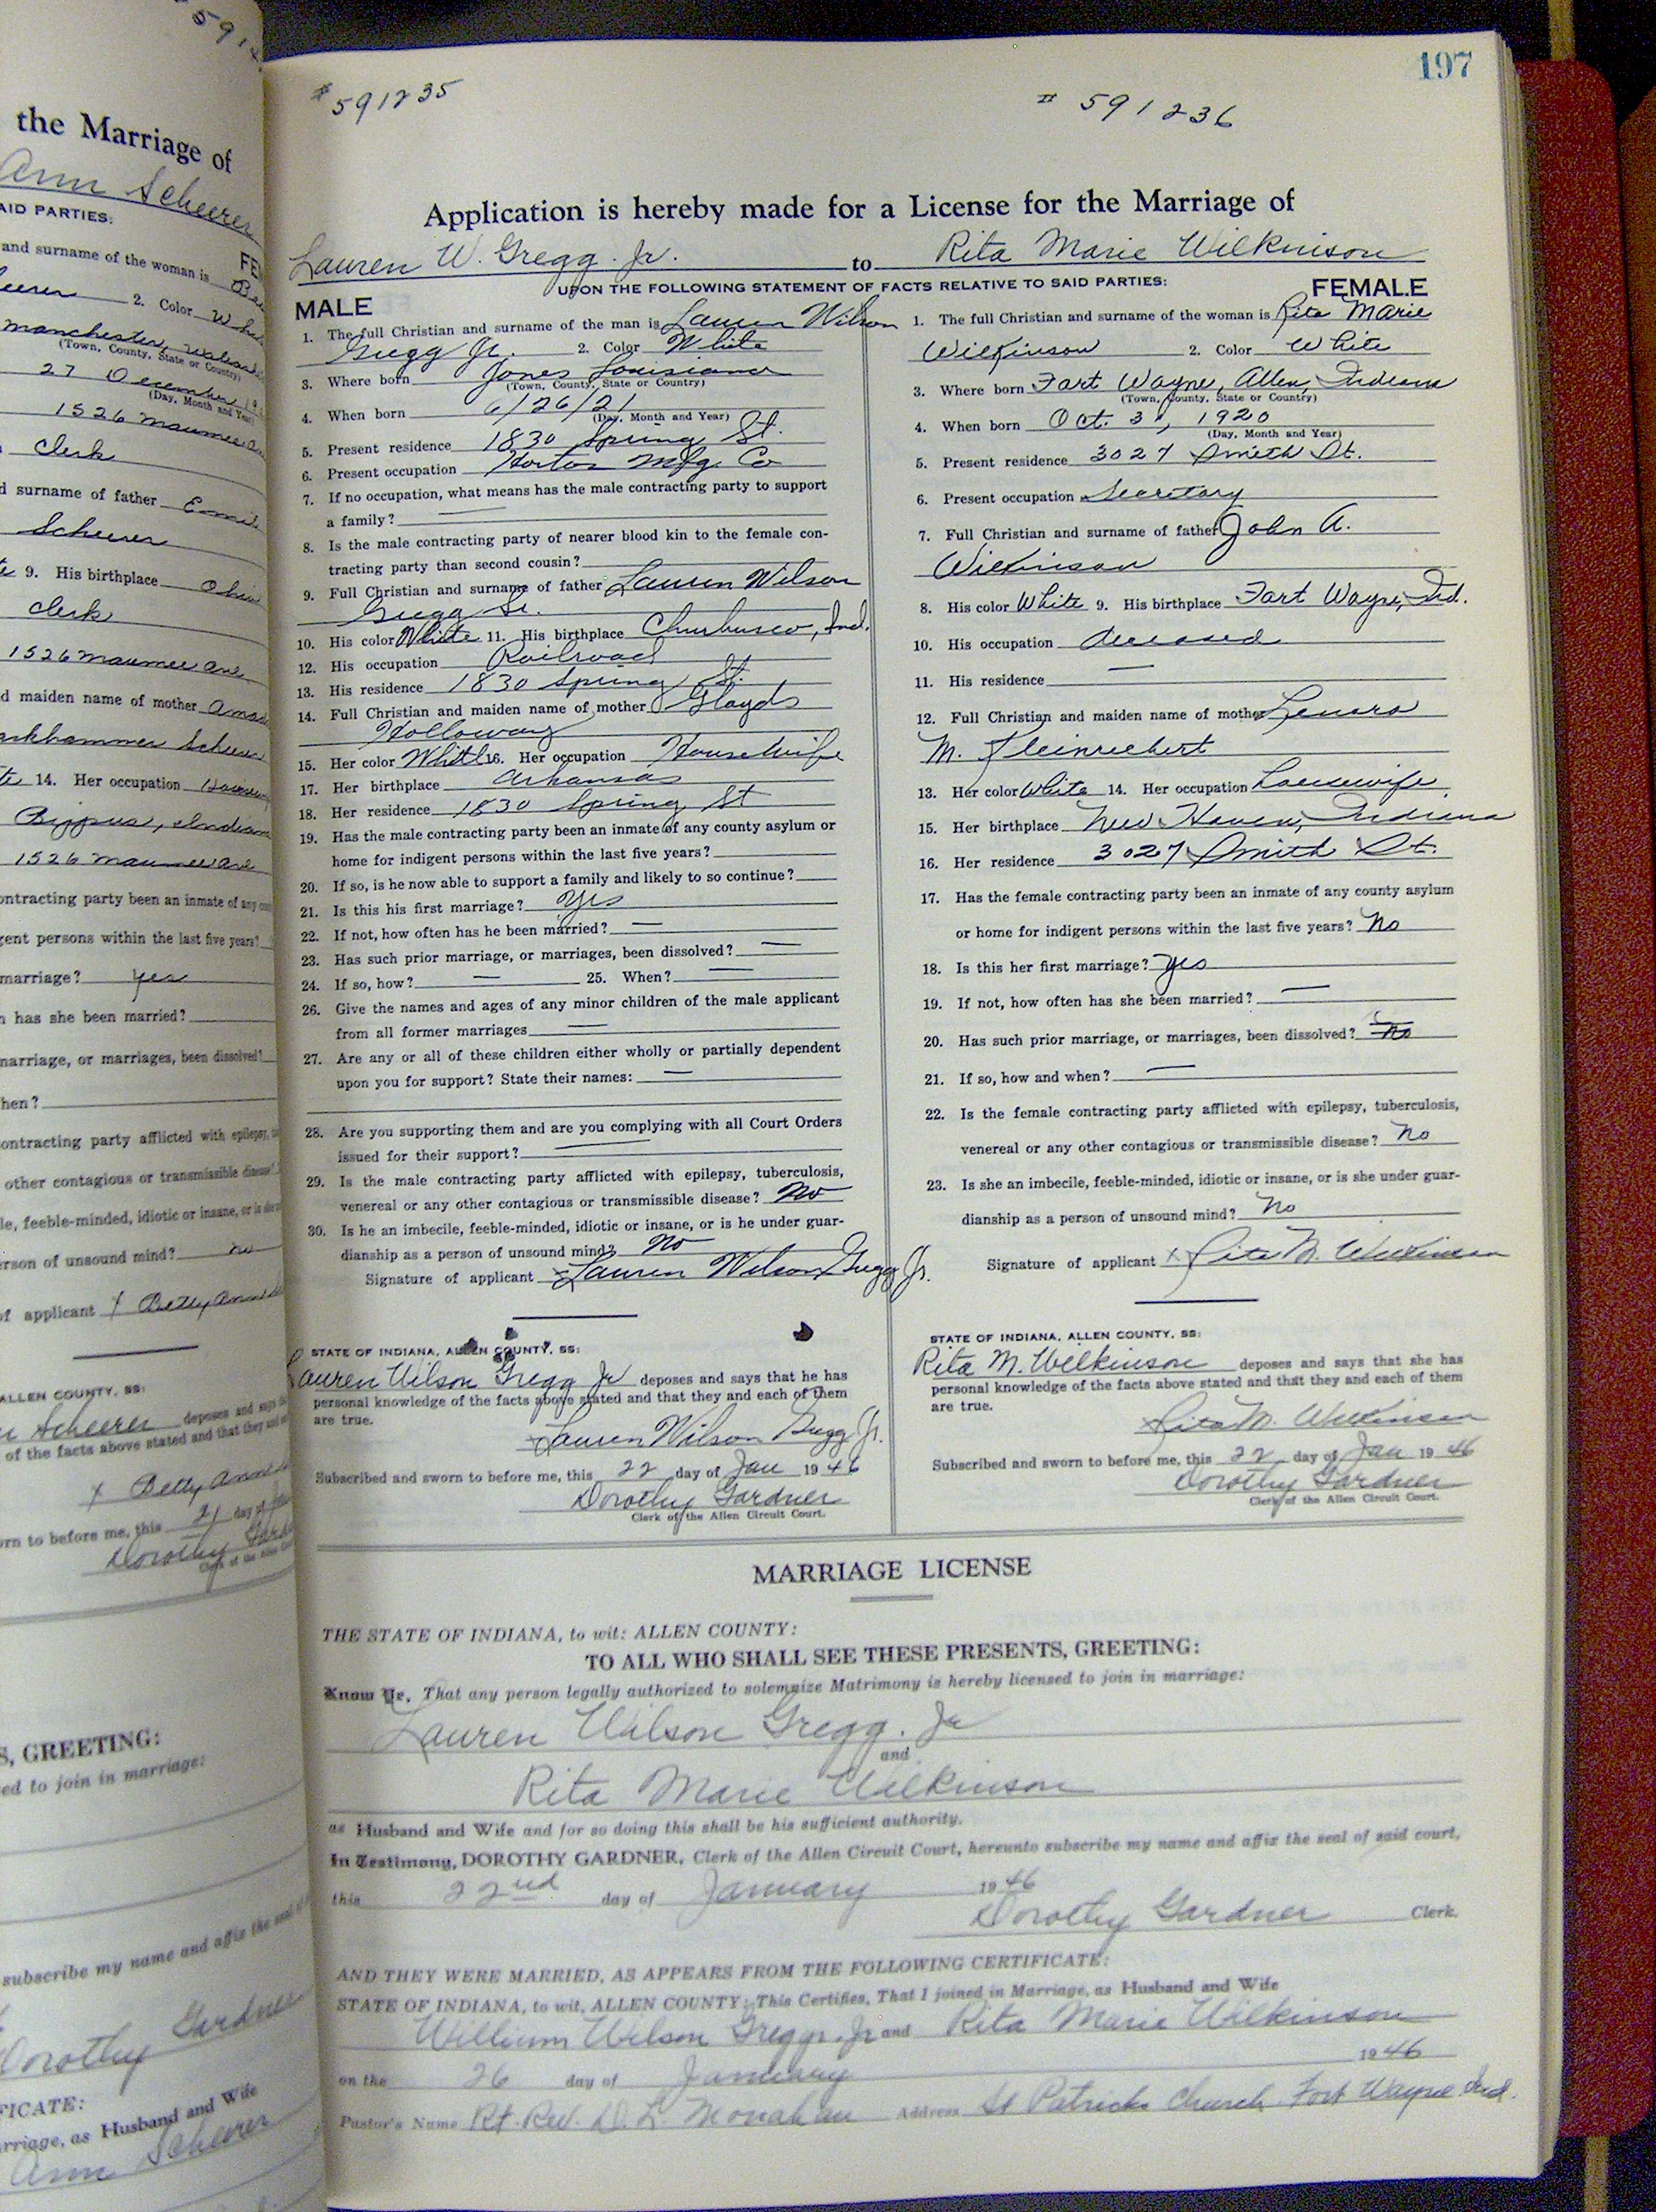 the Marriage of
Ann Scheerer
AID PARTIES:
and surname of the woman is
2. Color
Manchester,
(Town, County, State or Country)
27 December
(Day, Month and Year)
1526 Maumee
Clerk
d surname of father
Scheerer
9. His birthplace Ohio
Clerk
1526 Maumee Ave
d maiden name of mother
Scheerer
14. Her occupation
Bippus, Indiana
1526 Maumee Ave
ontracting party been an inmate of any
gent persons within the last five years?
marriage? Yes
has she been married?
marriage, or marriages, been dissolved?
hen?
ontracting party afflicted with epilepsy,
other contagious or transmissible disease?
le, feeble-minded, idiotic or insane, or is she
erson of unsound mind? no
of applicant X Betty Ann
ALLEN COUNTY, SS:
Scheerer deposes and says
of the facts above stated and that they and
X Betty Ann
orn to before me, this 21 day of
Dorothy
S, GREETING:
ed to join in marriage:
subscribe my name and affix the seal of
Dorothy Gardner
FICATE:
arriage, as Husband and Wife
Ann Scheerer
197
#591235 # 591236
Application is hereby made for a License for the Marriage of
Lauren W. Gregg. Jr. to Rita Marie Wilkinson
UPON THE FOLLOWING STATEMENT OF FACTS RELATIVE TO SAID PARTIES:
MALE
1. The full Christian and surname of the man is Lauren Wilson
Gregg Jr. 2. Color White
3. Where born Jones Louisiana
(Town, County, State or Country)
4. When born 6/26/21
(Day, Month and Year)
5. Present residence 1830 Spring St.
6. Present occupation Horton Mfg. Co
7. If no occupation, what means has the male contracting party to support
a family? —
8. Is the male contracting party of nearer blood kin to the female con-
tracting party than second cousin?
9. Full Christian and surname of father Lauren Wilson
Gregg Sr.
10. His color White 11. His birthplace Churbusco, Ind.
12. His occupation Railroad
13. His residence 1830 Spring St.
14. Full Christian and maiden name of mother Gladys
Holloway
15. Her color White 16. Her occupation Housewife
17. Her birthplace Arkansas
18. Her residence 1830 Spring St
19. Has the male contracting party been an inmate of any county asylum or
home for indigent persons within the last five years?
20. If so, is he now able to support a family and likely to so continue?
21. Is this his first marriage? Yes
22. If not, how often has he been married? —
23. Has such prior marriage, or marriages, been dissolved? —
24. If so, how? — 25. When? —
26. Give the names and ages of any minor children of the male applicant
from all former marriages —
27. Are any or all of these children either wholly or partially dependent
upon you for support? State their names: —
28. Are you supporting them and are you complying with all Court Orders
issued for their support? —
29. Is the male contracting party afflicted with epilepsy, tuberculosis,
venereal or any other contagious or transmissible disease? No
30. Is he an imbecile, feeble-minded, idiotic or insane, or is he under guar-
dianship as a person of unsound mind? No
Signature of applicant Lauren Wilson Gregg Jr.
STATE OF INDIANA, ALLEN COUNTY, SS:
Lauren Wilson Gregg Jr deposes and says that he has
personal knowledge of the facts above stated and that they and each of them
are true.
Lauren Wilson Gregg Jr.
Subscribed and sworn to before me, this 22 day of Jan 1946
Dorothy Gardner
Clerk of the Allen Circuit Court.
FEMALE
1. The full Christian and surname of the woman is Rita Marie
Wilkinson 2. Color White
3. Where born Fort Wayne, Allen, Indiana
(Town, County, State or Country)
4. When born Oct. 31, 1920
(Day, Month and Year)
5. Present residence 3027 Smith St.
6. Present occupation Secretary
7. Full Christian and surname of father John A.
Wilkinson
8. His color White 9. His birthplace Fort Wayne, Ind.
10. His occupation deceased
11. His residence —
12. Full Christian and maiden name of mother Lenora
M. Kleinrichert
13. Her color White 14. Her occupation housewife
15. Her birthplace New Haven, Indiana
16. Her residence 3027 Smith St.
17. Has the female contracting party been an inmate of any county asylum
or home for indigent persons within the last five years? No
18. Is this her first marriage? Yes
19. If not, how often has she been married? —
20. Has such prior marriage, or marriages, been dissolved? No
21. If so, how and when? —
22. Is the female contracting party afflicted with epilepsy, tuberculosis,
venereal or any other contagious or transmissible disease? No
23. Is she an imbecile, feeble-minded, idiotic or insane, or is she under guar-
dianship as a person of unsound mind? No
Signature of applicant X Rita M. Wilkinson
STATE OF INDIANA, ALLEN COUNTY, SS:
Rita M. Wilkinson deposes and says that she has
personal knowledge of the facts above stated and that they and each of them
are true.
Rita M. Wilkinson
Subscribed and sworn to before me, this 22 day of Jan 1946
Dorothy Gardner
Clerk of the Allen Circuit Court.
MARRIAGE LICENSE
THE STATE OF INDIANA, to wit: ALLEN COUNTY:
TO ALL WHO SHALL SEE THESE PRESENTS, GREETING:
Know Ye, That any person legally authorized to solemnize Matrimony is hereby licensed to join in marriage:
Lauren Wilson Gregg. Jr
and
Rita Marie Wilkinson
as Husband and Wife and for so doing this shall be his sufficient authority.
In Testimony, DOROTHY GARDNER, Clerk of the Allen Circuit Court, hereunto subscribe my name and affix the seal of said court,
this 22nd day of January 1946
Dorothy Gardner Clerk.
AND THEY WERE MARRIED, AS APPEARS FROM THE FOLLOWING CERTIFICATE:
STATE OF INDIANA, to wit, ALLEN COUNTY: This Certifies, That I joined in Marriage, as Husband and Wife
William Wilson Gregg. Jr and Rita Marie Wilkinson
on the 26 day of January 1946
Pastor's Name Rt. Rev. D. L. Monahan Address St Patricks Church Fort Wayne Ind.